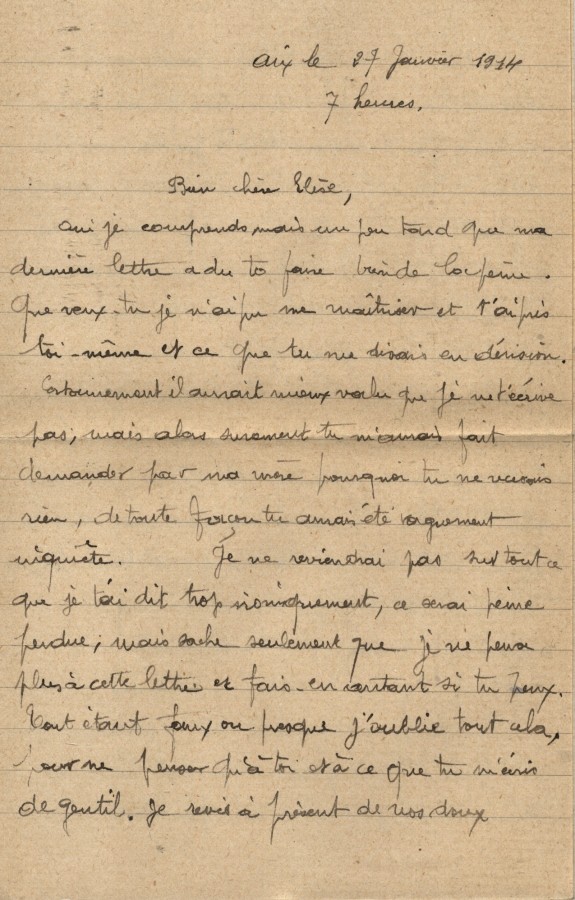 Aix le 27 Janvier 1914
7 heures.
Bien chère Elise,
Oui je comprends, mais un peu tard que ma
dernière lettre a du te faire bien de la peine.
Que veux-tu je n'ai pu me maîtriser et t'ai pris
toi-même et ce que tu me disais en dérision.
Certainement il aurait mieux valu que je ne t'écrive
pas; mais alors surement tu m'aurais fait
demander par ma mère pourquoi tu ne recevais
rien, de toute façon tu aurais été vaguement
inquiète. Je ne reviendrai pas sur tout ce
que je t'ai dit trop ironiquement, ce serai peine
perdue; mais sache seulement que je ne pense
plus à cette lettre et fais-en autant si tu peux.
Tout étant faux ou presque j'oublie tout cela,
pour ne penser qu'à toi et à ce que tu m'écris
de gentil. Je revis à présent de nos doux